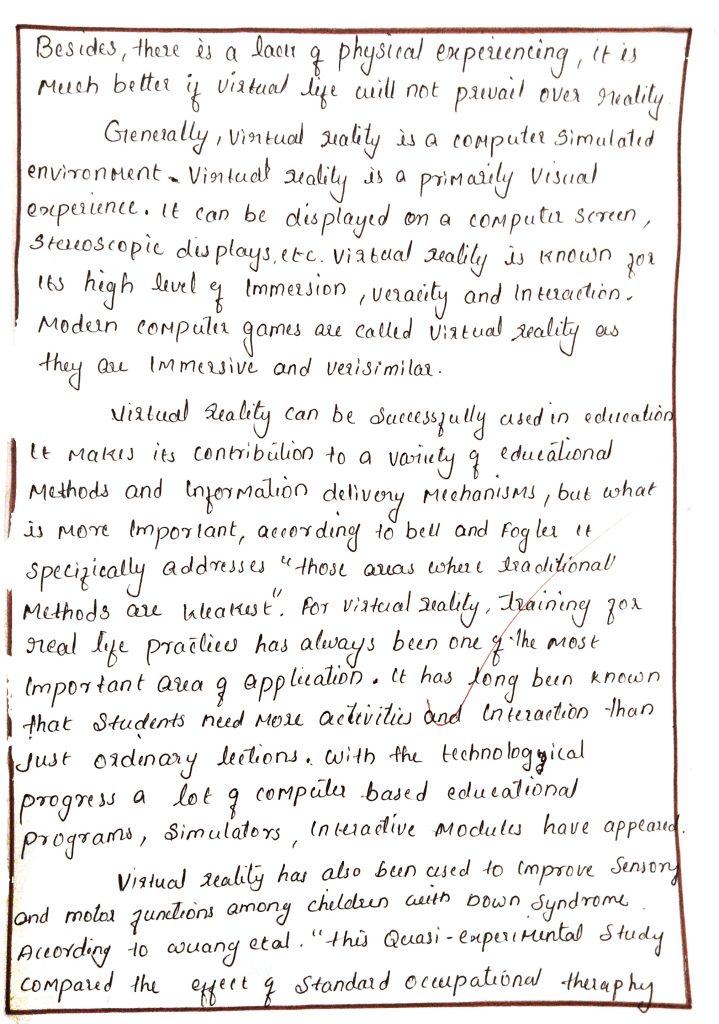 Besides, there is a lack of physical experiencing, it is
much better if virtual life will not prevail over reality.
Generally, virtual reality is a computer simulated
environment. Virtual reality is a primarily visual
experience. It can be displayed on a computer screen,
stereoscopic displays, etc. virtual reality is known for
its high level of immersion, veracity and interaction.
Modern computer games are called virtual reality as
they are immersive and verisimilar.
Virtual reality can be successfully used in education
It makes its contribution to a variety of educational
methods and information delivery mechanisms, but what
is more important, according to bell and Fogler it
specifically addresses "those areas where traditional
methods are weakest". For virtual reality, training for
real life practices has always been one of the most
important area of application. It has long been known
that students need more activities and interaction than
just ordinary lections. With the technologgical
progress a lot of computer based educational
programs, simulators, interactive modules have appeared.
Virtual reality has also been used to improve sensory
and motor functions among children with Down syndrome.
According to wuang etal. "this Quasi-experimental study
compared the effect of standard occupational theraphy